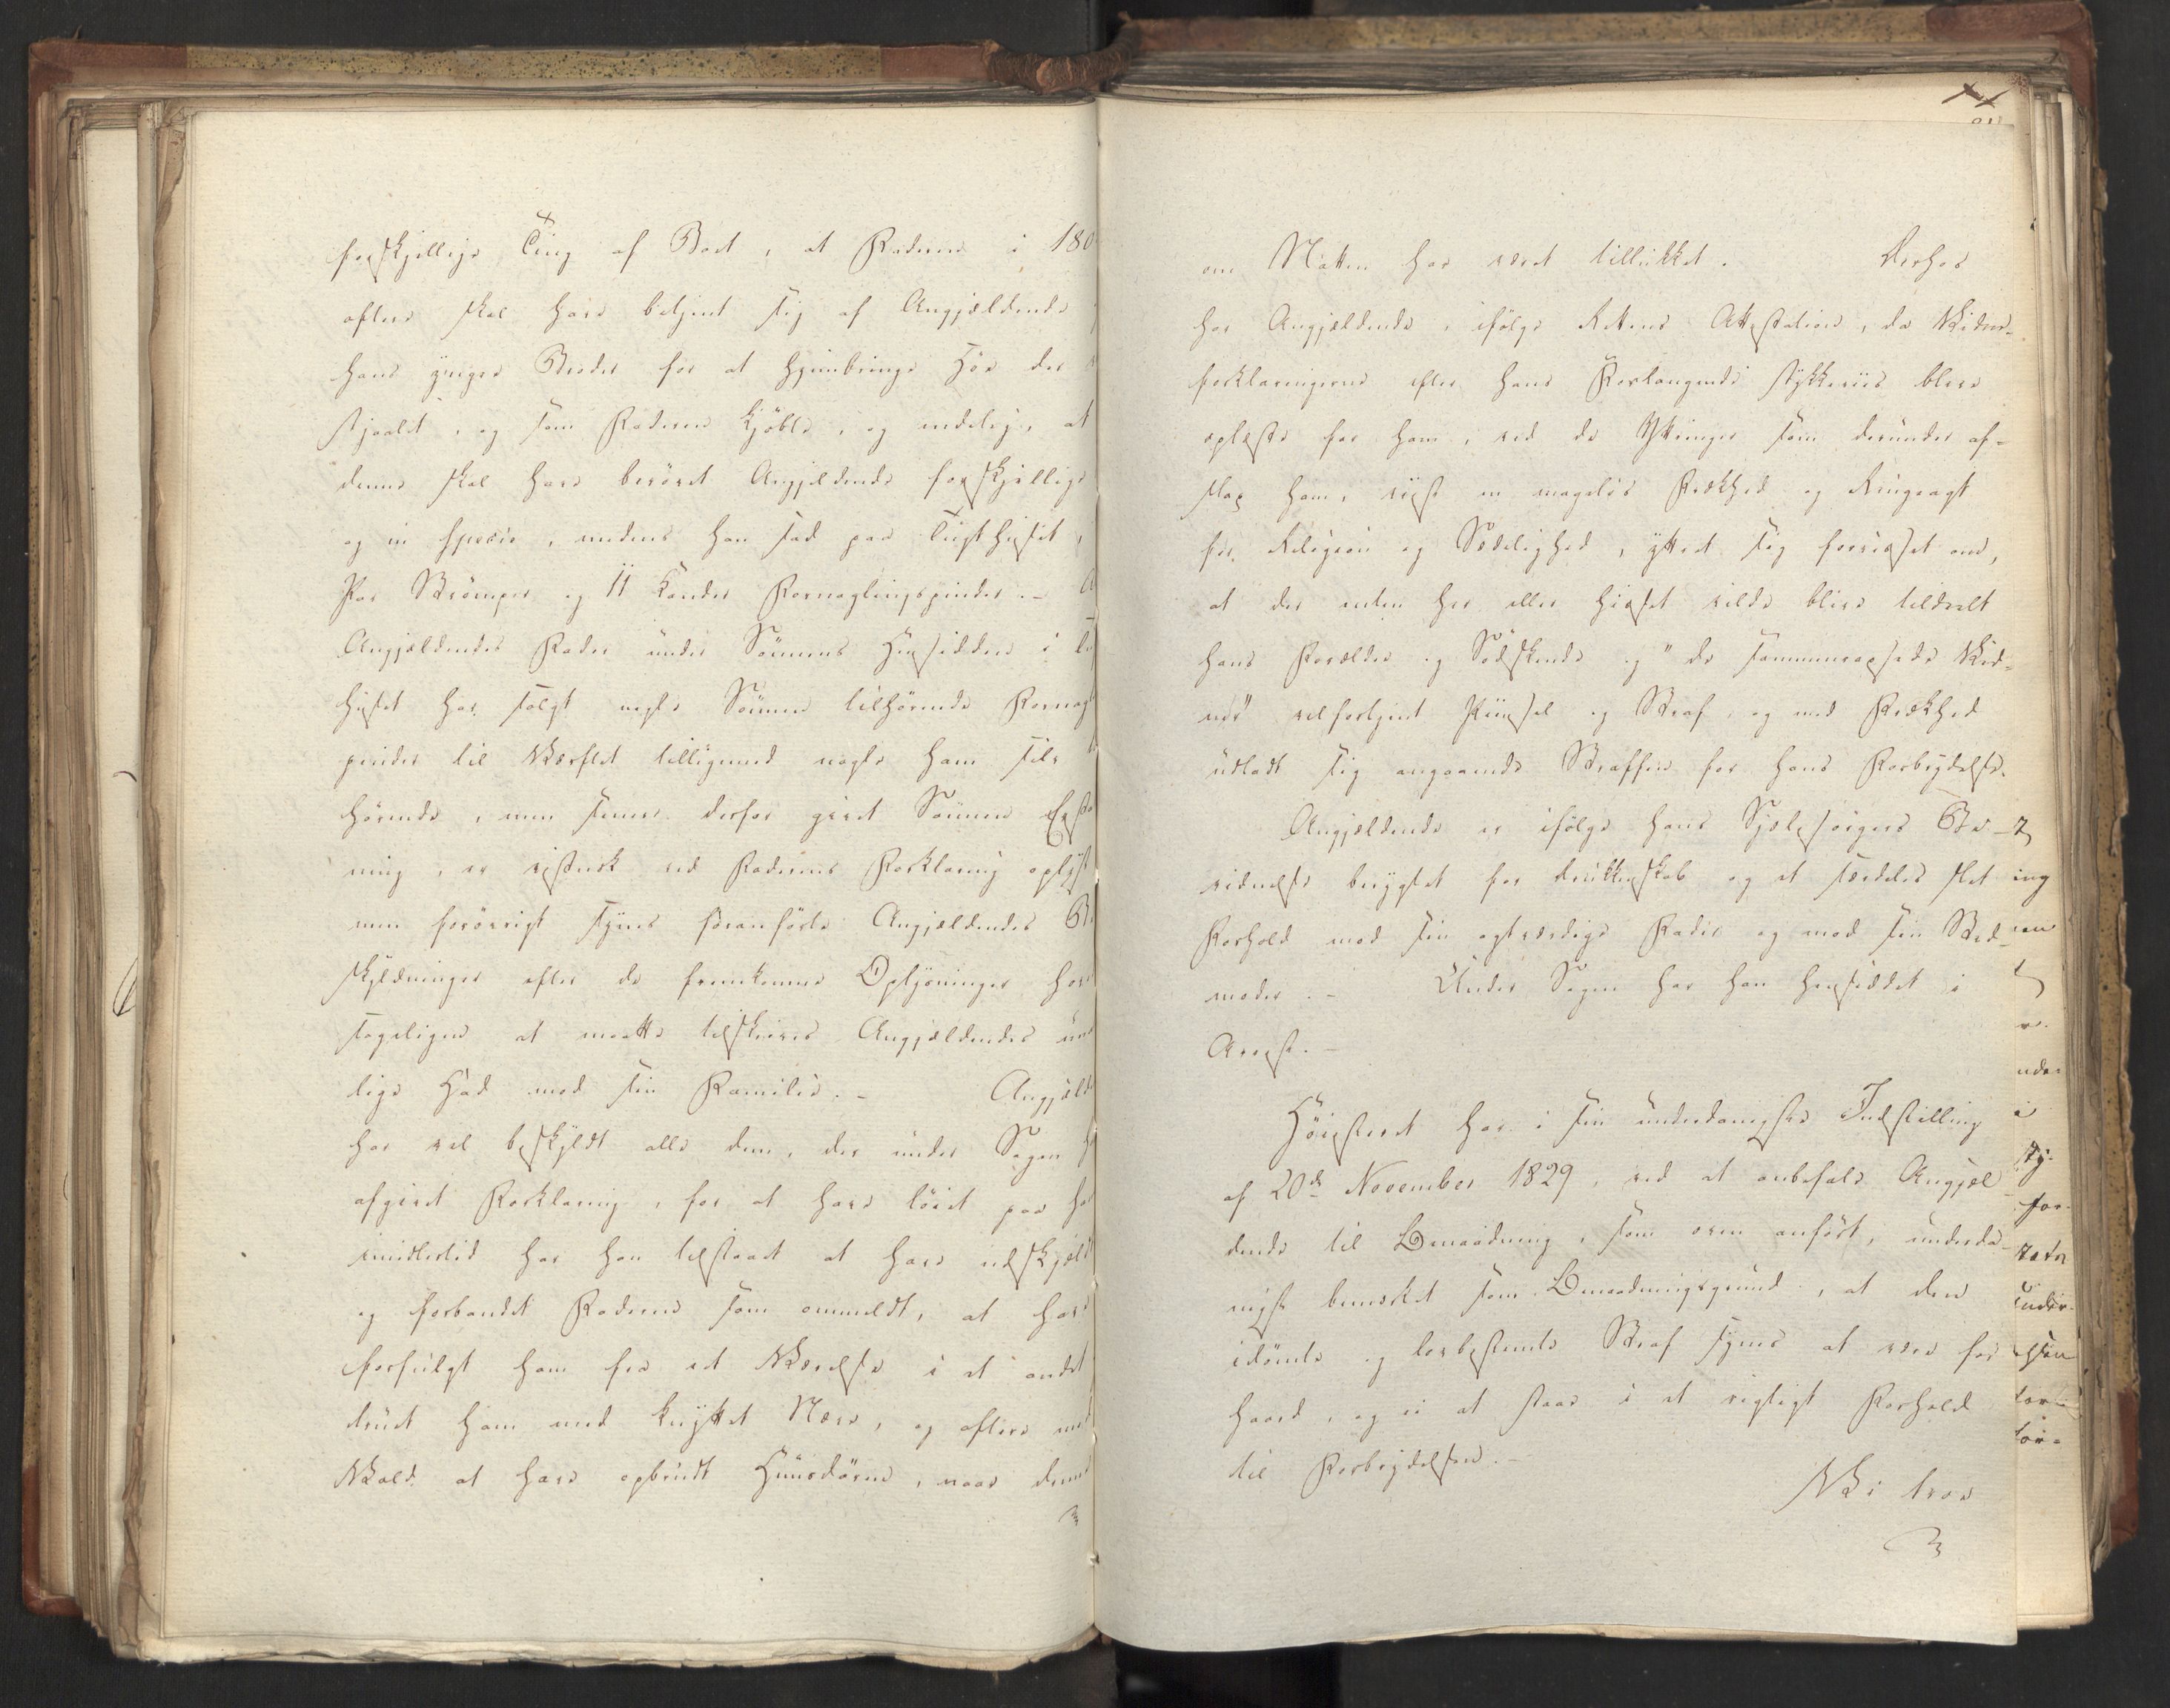 forskjellige Ting af Boet, at Faderen i 180
oftere skal have betjent sig af Angjældende
hans yngre Broder for at hjembringe Höe der
stjaalet, og som Faderen kjöbte, og endelig, at
denne skal have berövet Angjeldende forskjellige
og in specie, medens han sad paa Tugthuset,
Par Strömper og 11 Tönder Fornaglingspinder.–
Angjældendes Fader under Sönnens Hensidden i
huset har solgt nogle Sönnen tilhörende Fornagl
pinder til Værftet tilligemed nogle ham selv
hörende, men senere derfor givet Sönnen Ersta
ning, er vistnok ved Faderens Forklaring oplyst
men forövrigt synes foranförte Angjældendes Be
skyldninger efter de fremkomne Oplysninger hoved
sageligen at maatte tilskrives Angjældendes
lige Had mod sin Familie.– Angjæld
har vel beskyldt alle dem, der under Sagen
afgivet Forklaring, for at have löiet paa ham
imidlertid har han tilstaaet at have udskjældt
og forbandet Faderen som ommeldt, at have
forfulgt ham fra et Værelse i et andet
truet ham med knyttet Næve, og oftere med
Vold at have opbrudt Huusdören, naar denne
om Natten har været tillukket. Derhos
har Angjældende, ifölge Rettens Attestation, da Vidne-
forklaringerne efter hans Forlangende stykkeviis bleve
oplæste for ham, ved de Yttringer som derunder af-
slap ham, viist en mageløs Frækhed og Ringeagt
for Religion og Sædelighed, yttret sig forvisset om,
at der enten her eller hisset vilde blive tildeelt
hans Forældre og Södskende og "de sammenrapsede Vid-
ner" velfortjent Piinsel og Straf, og med Frækhed
udladt sig angaaende Straffen for hans Forbrydelse.
Angjældende er ifölge hans Sjælesörgers Be-
vidnelse berygtet for Drukkenskab og et særdeles slet
Forhold mod sin agtværdige Fader og mod sin Sted-
moder.– Under Sagen har han hensiddet i
Arrest.–
Höiesteret har i sin underdanigste Indstilling
af 20de November 1829, ved at anbefale Angjæl-
dende til Benaadning, som oven anfört, underda-
nigst bemærket som Benaadningsgrund, at den
idömte og lovbestemte Straf synes at være for
haard, og ei at staae i et rigtigt Forhold
til Forbrydelsen.–
Vi troe